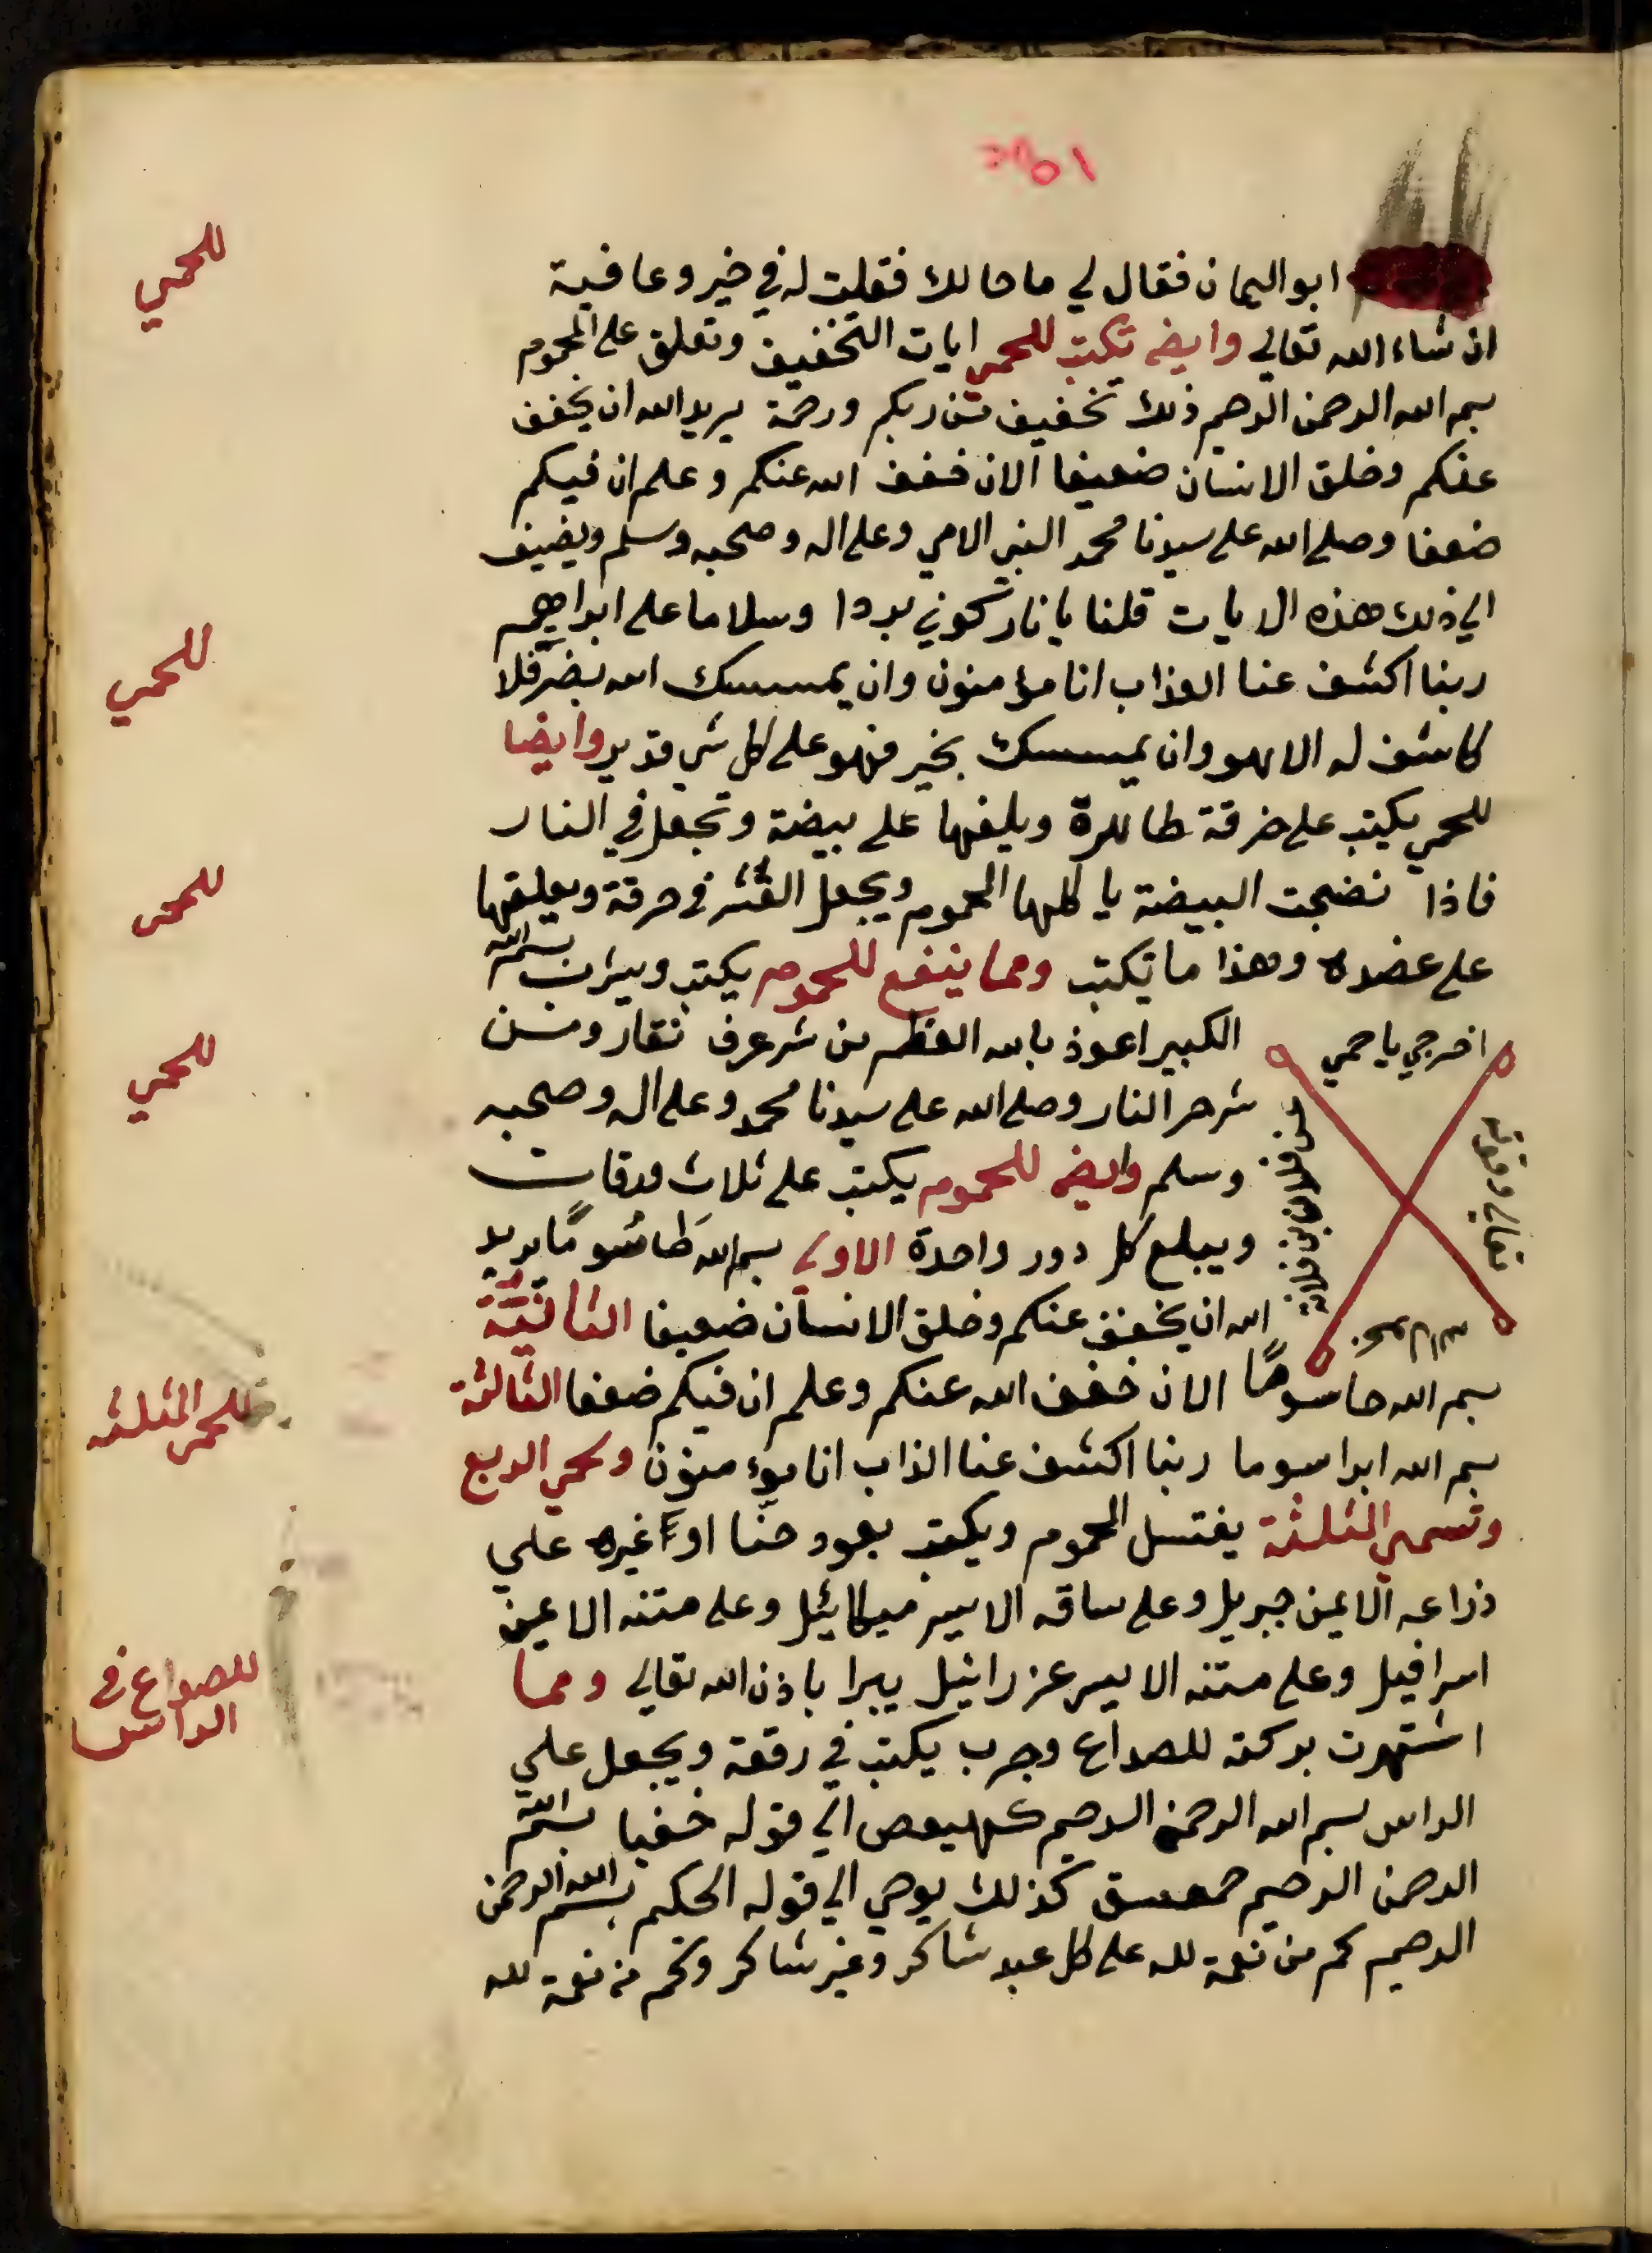 ابو اليمان فقال لي ما حالك فقلت له في خير وعافية
ان شاء الله تعالي وايضه تكتب للحمي ايات التخفيف وتعلق علي المحموم
بسم الله الرحمن الرحيم ذلك تخفيف من ربكم ورحمة يريد الله ان يخفف
عنكم وخلق الانسان ضعيفا الان خفف الله عنكم وعلم ان فيكم
ضعفا وصلي الله علي سيدنا محمد النبي الامي وعلي اله وصحبه وسلم ويضيف
الي ذلك هذه الايات قلنا يا نار كوني بردا وسلاما علي ابراهيم
ربنا اكشف عنا العذاب انا مؤمنون وان يمسسك الله بضر فلا
كاشف له الا هو وان يمسسك بخير فهو علي كل شي قدير وايضا
للحمي يكتب علي خرقة طاهرة ويلفها علي بيضة وتجعل في النار
فاذا نضجت البيضة ياكلها المحموم ويجعل القشر في خرقة ويعلقها
علي عضده وهذا ما تكتب ومما ينفع للمحموم يكتب ويشرب بسم الله
اخرجي يا حمي
الكبير اعوذ بالله العظيم من شر عرق نعار ومن
شر حر النار وصلي الله علي سيدنا محمد وعلي اله وصحبه
وسلم وايضه للمحموم يكتب علي ثلاث ورقات
ويبلع كل دور واحدة الاولي بسم الله طاسوما يريد
الله ان يخفف عنكم وخلق الانسان ضعيفا الثانية
بسم الله حاسوما الان خفف الله عنكم وعلم ان فيكم ضعفا الثالثة
بسم الله ابراسوما ربنا اكشف عنا الذاب انا مؤمنون ولحمي الربع
وتسمي المثلثة يغتسل المحموم ويكتب بعود حنا او غيره علي
ذراعه الايمن جبريل وعلي ساقه الايسر ميكائيل وعلي متنه الايمن
اسرافيل وعلي متنه الايسر عزرائيل يبرا باذن الله تعالي ومما
اشتهرت بركته للصداع وجرب يكتب في رقعة ويجعل علي
الراس بسم الله الرحمن الرحيم كهيعص الي قوله خفيا بسم الله
الرحمن الرحيم حمعسق كذلك يوحي الي قوله الحكيم بسم الله الرحمن
الرحيم كم من نعمة لله علي كل عبد شاكر وغير شاكر وكم من نعمة لله
من فلان بن فلانة
للحمي
للحمي
للحمي
للحمي
للحمي المثلثه
للصداع في
الراس